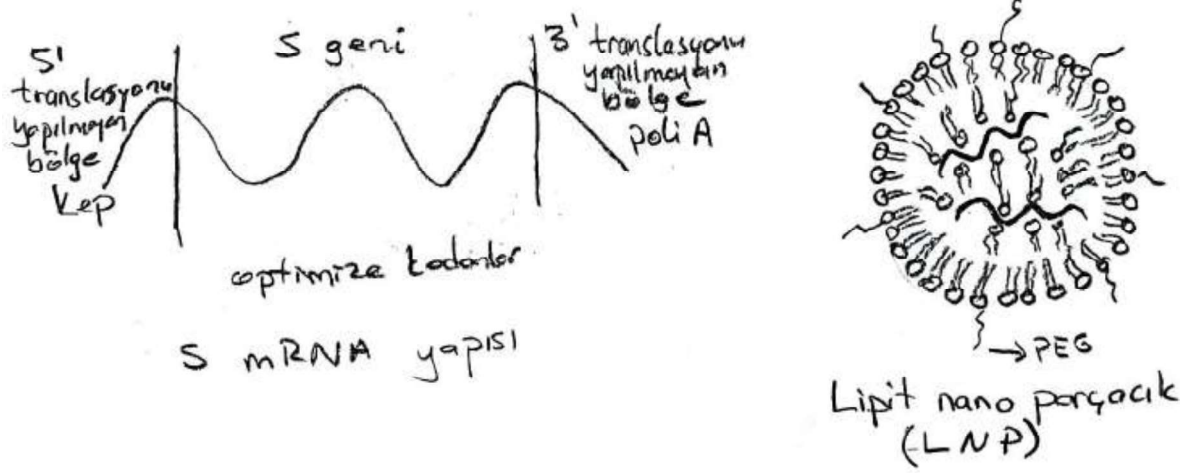 5'
translasyonu
yapılmayan
bölge
Kep
S geni
3' translasyonu
yapılmayan
bölge
poli A
optimize kodonlar
S mRNA yapısı
→PEG
Lipit nano parçacık
(LNP)